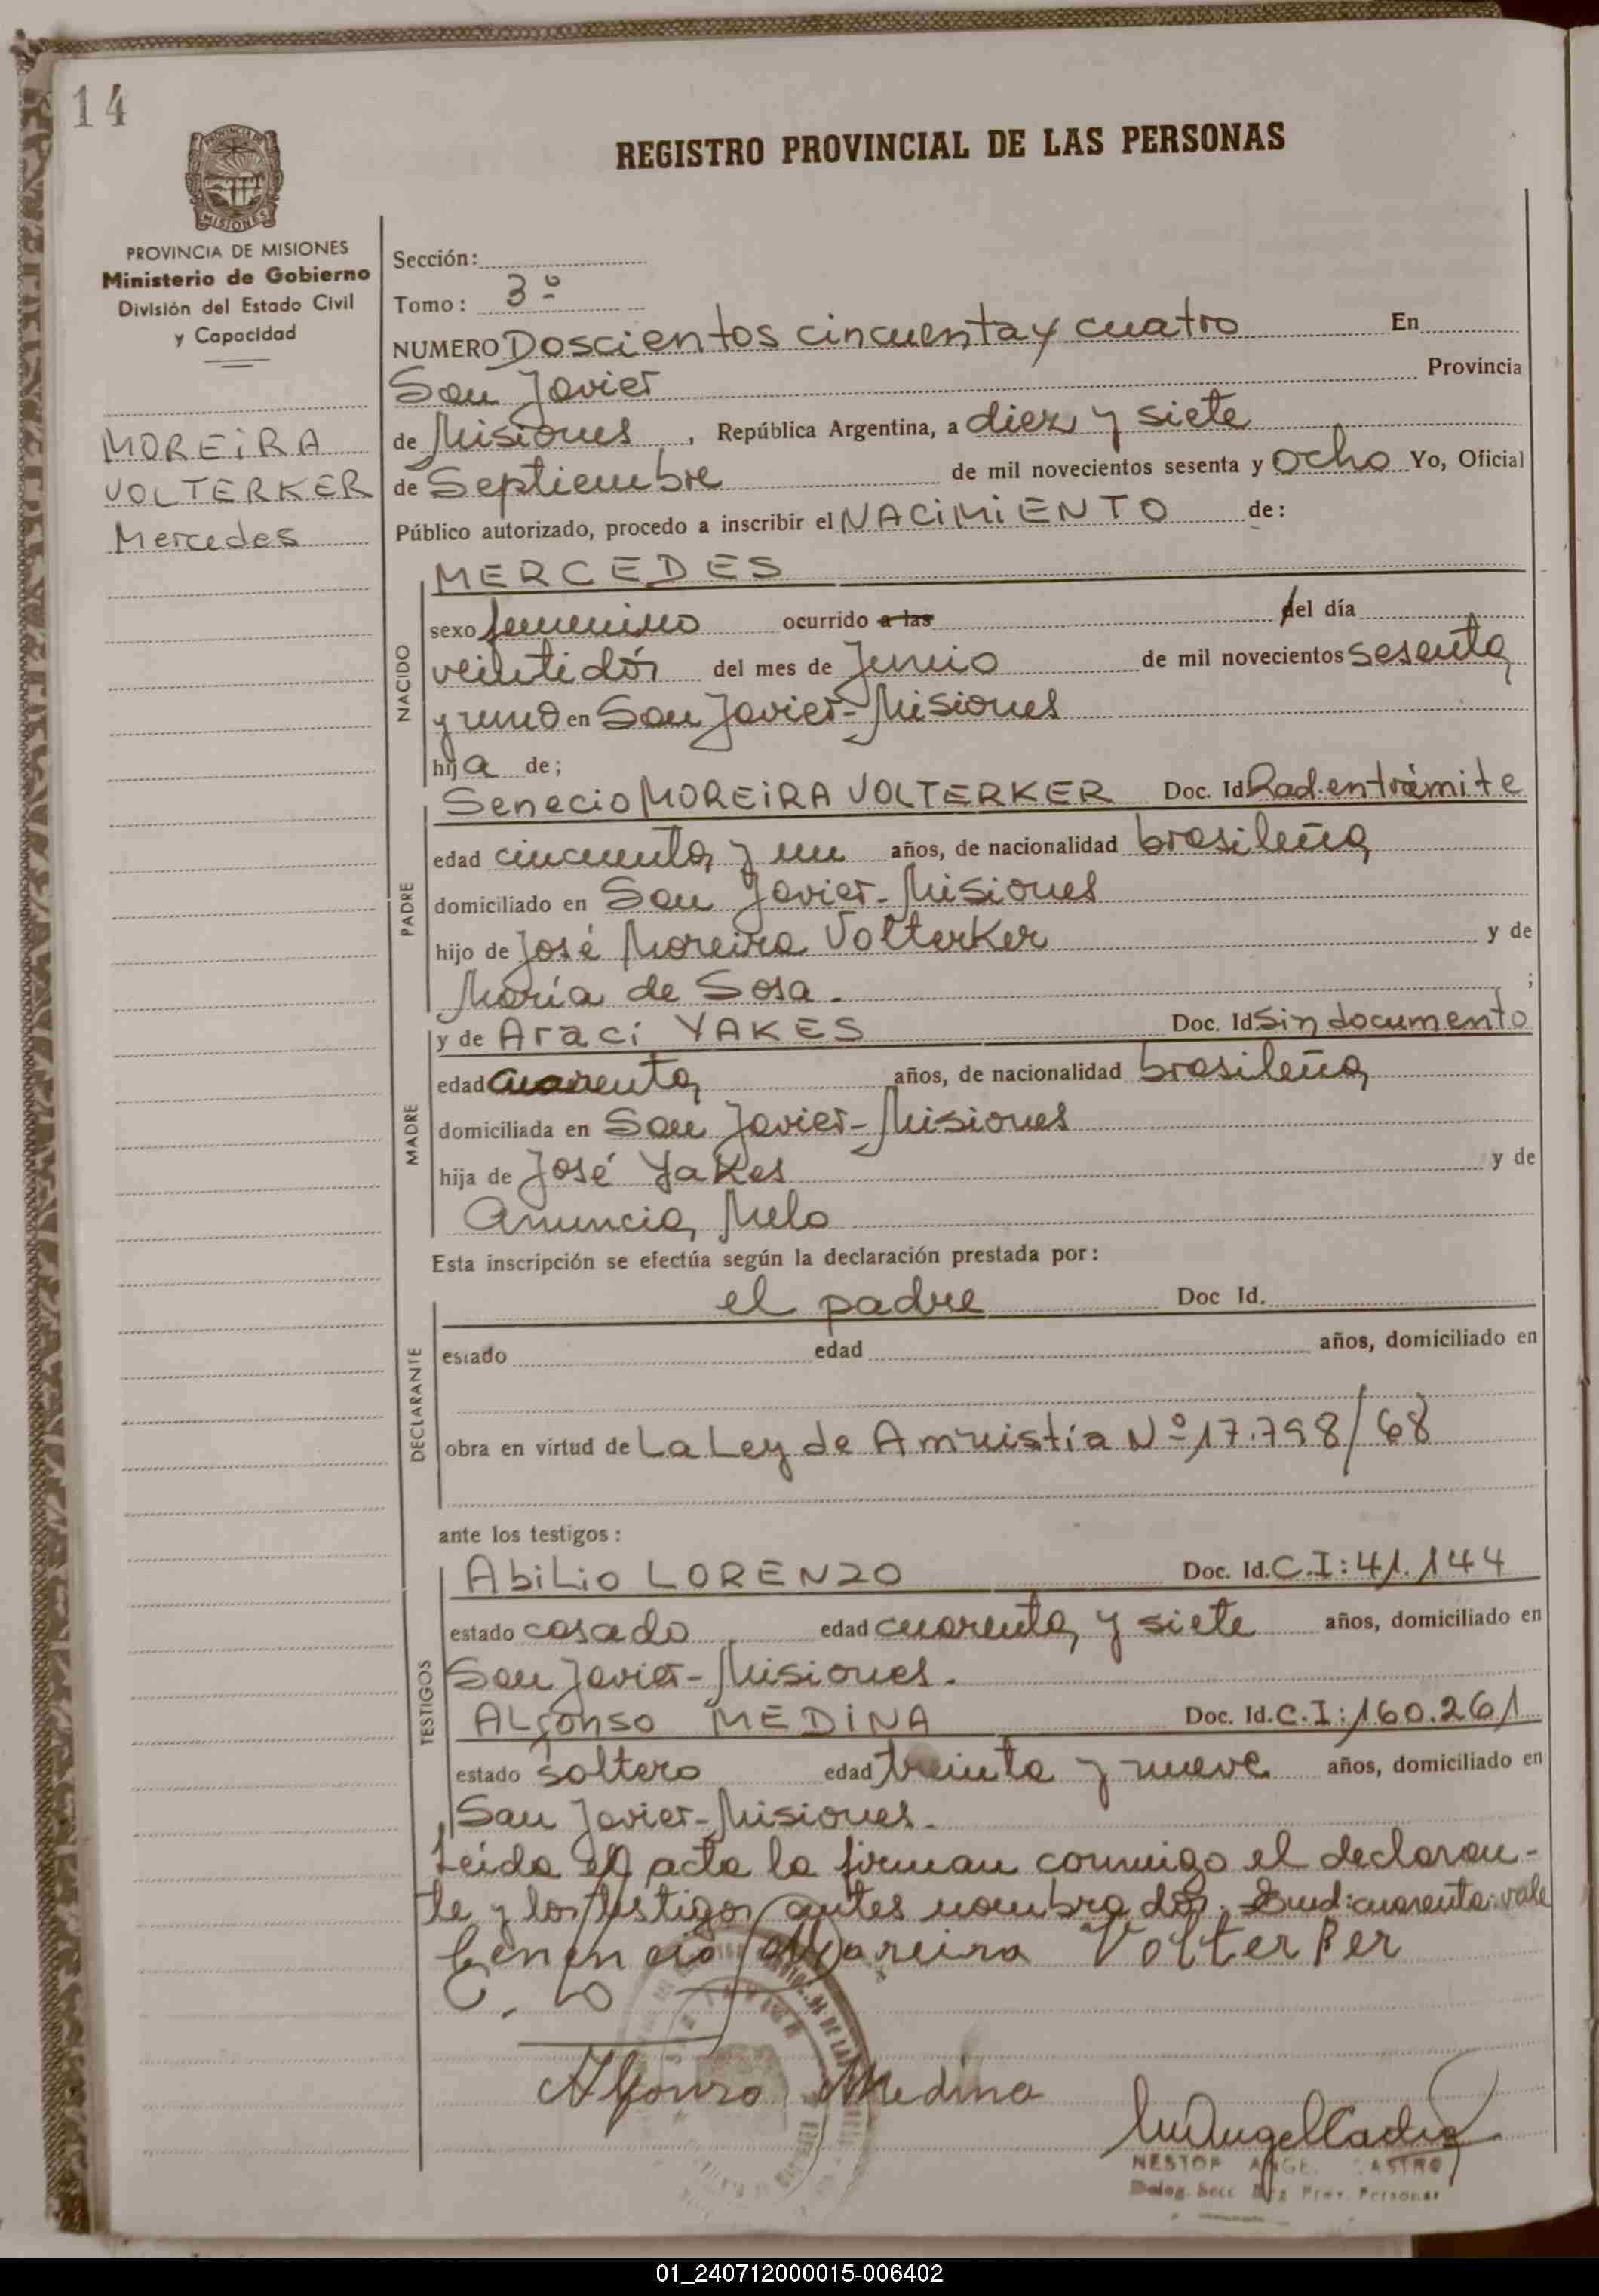 14
PROVINCIA DE
MISIONES
REGISTRO PROVINCIAL DE LAS PERSONAS
PROVINCIA DE MISIONES
Ministerio de Gobierno
División del Estado Civil
y Capacidad
MOREIRA
VOLTERKER
Mercedes
Sección:
Tomo: 3º
NUMERO Doscientos cincuenta y cuatro En
San Javier Provincia
de Misiones, República Argentina, a diez y siete
de Septiembre de mil novecientos sesenta y ocho Yo, Oficial
Público autorizado, procedo a inscribir el NACIMIENTO de:
NACIDO
MERCEDES
sexo femenino ocurrido a las del día
veintidós del mes de Junio de mil novecientos sesenta
y uno en San Javier-Misiones
hija de;
PADRE
Senecio MOREIRA VOLTERKER Doc. Id. Rad. en trámite
edad cincuenta y un años, de nacionalidad brasileña
domiciliado en San Javier-Misiones
hijo de José Moreira Volterker y de
María de Sosa. ;
MADRE
y de Araci YAKES Doc. Id. Sin documento
edad cuarenta años, de nacionalidad brasileña
domiciliada en San Javier-Misiones
hija de José Yakes y de
Anuncia Melo
Esta inscripción se efectúa según la declaración prestada por:
DECLARANTE
el padre Doc Id.
estado edad años, domiciliado en
obra en virtud de La Ley de Amnistía Nº 17.798/68
ante los testigos:
TESTIGOS
Abilio LORENZO Doc. Id. C.I: 41.144
estado casado edad cuarenta y siete años, domiciliado en
San Javier-Misiones.
Alfonso MEDINA Doc. Id. C.I: 160.261
estado soltero edad treinta y nueve años, domiciliado en
San Javier-Misiones.
Leída el acta la firman conmigo el declaran-
te y los testigos antes nombrados. Emd: cuarenta: vale
Moreira Volterker
Alfonso Medina
NESTOR ANGEL CASTRO
Deleg. Secc. Prov. Personas
01_240712000015-006402